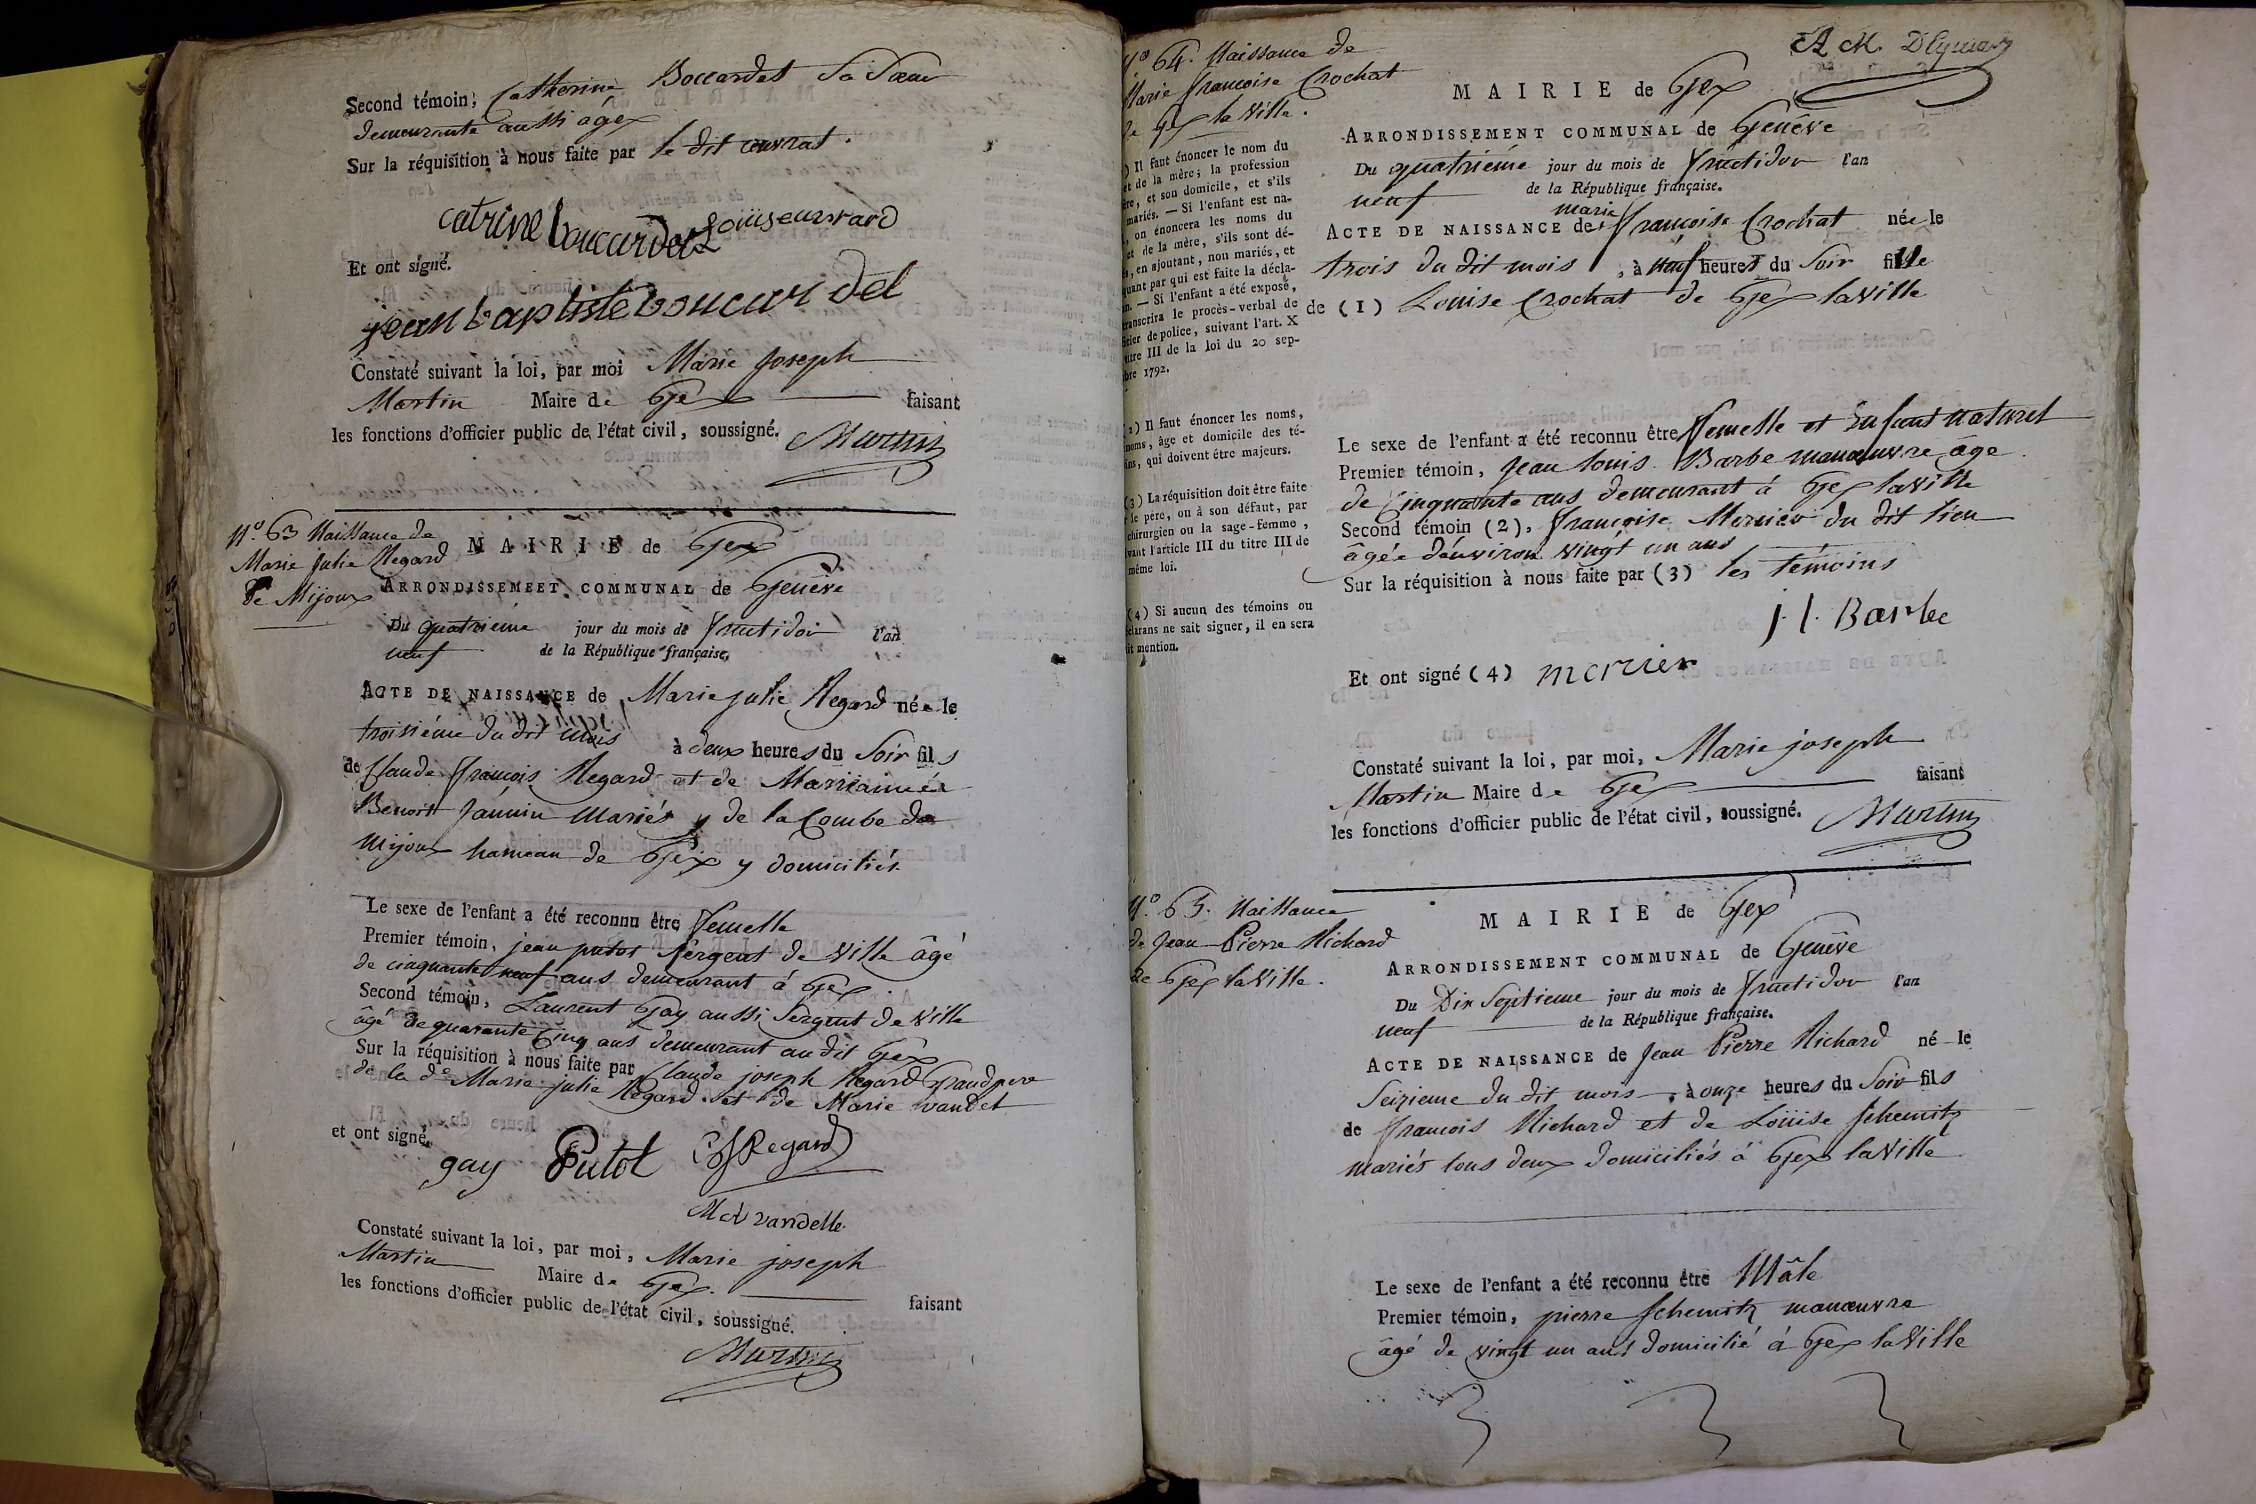 Second témoin, Catherine Boccardet Sa Sœur
demeurante aussi à gex
Sur la réquisition à nous faite par le dit
catrine bouccardet Louis
Et ont signé.
jean baptiste boucardel
Constaté suivant la loi, par moi Marie Joseph
Martin Maire de Gex faisant
les fonctions d'officier public de l'état civil, soussigné. Martin
N.º 63 Naissance de
Marie Julie Regard
de Mijoux
MAIRIE de Gex
ARRONDISSEMEET COMMUNAL de Genêve
Du quatrieme jour du mois de fructidor l'an
neuf de la République française.
ACTE DE NAISSANCE de Marie julie Regard née le
troisiéme du dit mois à deux heures du Soir fils
de Claude françois Regard et de
Benoit Jannin mariés y de la Combe de
mijoux hameau de Gex y domiciliés
Le sexe de l'enfant a été reconnu être femelle
Premier témoin, jean putot sergent de ville âgé
de cinquante neuf ans demeurant à Gex
Second témoin, Laurent Gay aussi Sergent de ville
âgé de quarante Cinq ans demeurant au dit Gex
Sur la réquisition à nous faite par Claude joseph Regard Grand pere
de la de Marie julie Regard et de Marie vandel
et ont signé.
gay Putot CJ Regard
vandelle
Constaté suivant la loi, par moi, Marie joseph
Martin Maire de Gex faisant
les fonctions d'officier public de l'état civil, soussigné.
Martin
A M
Nº 64. Naissance de
Marie françoise Crochat
de Gex la Ville.
) Il faut énoncer le nom du
et de la mère; la profession
ère, et son domicile, et s'ils
mariés. — Si l'enfant est na-
, on énoncera les noms du
et de la mère, s'ils sont dé-
s, en ajoutant, non mariés, et
quant par qui est faite la décla-
on. — Si l'enfant a été exposé,
transcrira le procès-verbal de
ficier de police, suivant l'art. X
titre III de la loi du 20 sep-
bre 1792.
(2) Il faut énoncer les noms,
noms, âge et domicile des té-
ins, qui doivent être majeurs.
(3) La réquisition doit être faite
le père, ou à son défaut, par
chirurgien ou la sage-femme,
vant l'article III du titre III de
même loi.
(4) Si aucun des témoins ou
clarans ne sait signer, il en sera
it mention.
MAIRIE de Gex
ARRONDISSEMENT COMMUNAL de Genêve
Du quatrieme jour du mois de fructidor l'an
neuf de la République française.
marie
ACTE DE NAISSANCE de françoise Crochat née le
trois du dit mois, à neuf heures du Soir fille
de (1) Louise Crochat de Gex la Ville
Le sexe de l'enfant a été reconnu être femelle et Enfant naturel
Premier témoin, jean louis Barbe manœuvre âgé
de Cinquante ans demeurant à Gex la Ville
Second témoin (2), françoise Mernier du dit lieu
âgée d'environ vingt un ans
Sur la réquisition à nous faite par (3) les témoins
j. l. Barbe
Et ont signé (4)
Constaté suivant la loi, par moi, Marie joseph
Martin Maire de Gex faisant
les fonctions d'officier public de l'état civil, soussigné. Martin
N.º 65. Naissance
de Jean Pierre Richard
de Gex la Ville.
MAIRIE de Gex
ARRONDISSEMENT COMMUNAL de Genêve
Du Dix Septieme jour du mois de fructidor l'an
neuf de la République française.
ACTE DE NAISSANCE de Jean Pierre Richard né le
Seizieme du dit mois, à onze heures du Soir fils
de françois Richard et de Loüise Schemitz
mariés tous deux domiciliés à Gex la Ville
Le sexe de l'enfant a été reconnu être Mâle
Premier témoin, pierre Schemitz manœuvre
âgé de vingt un ans domicilié à Gex la Ville